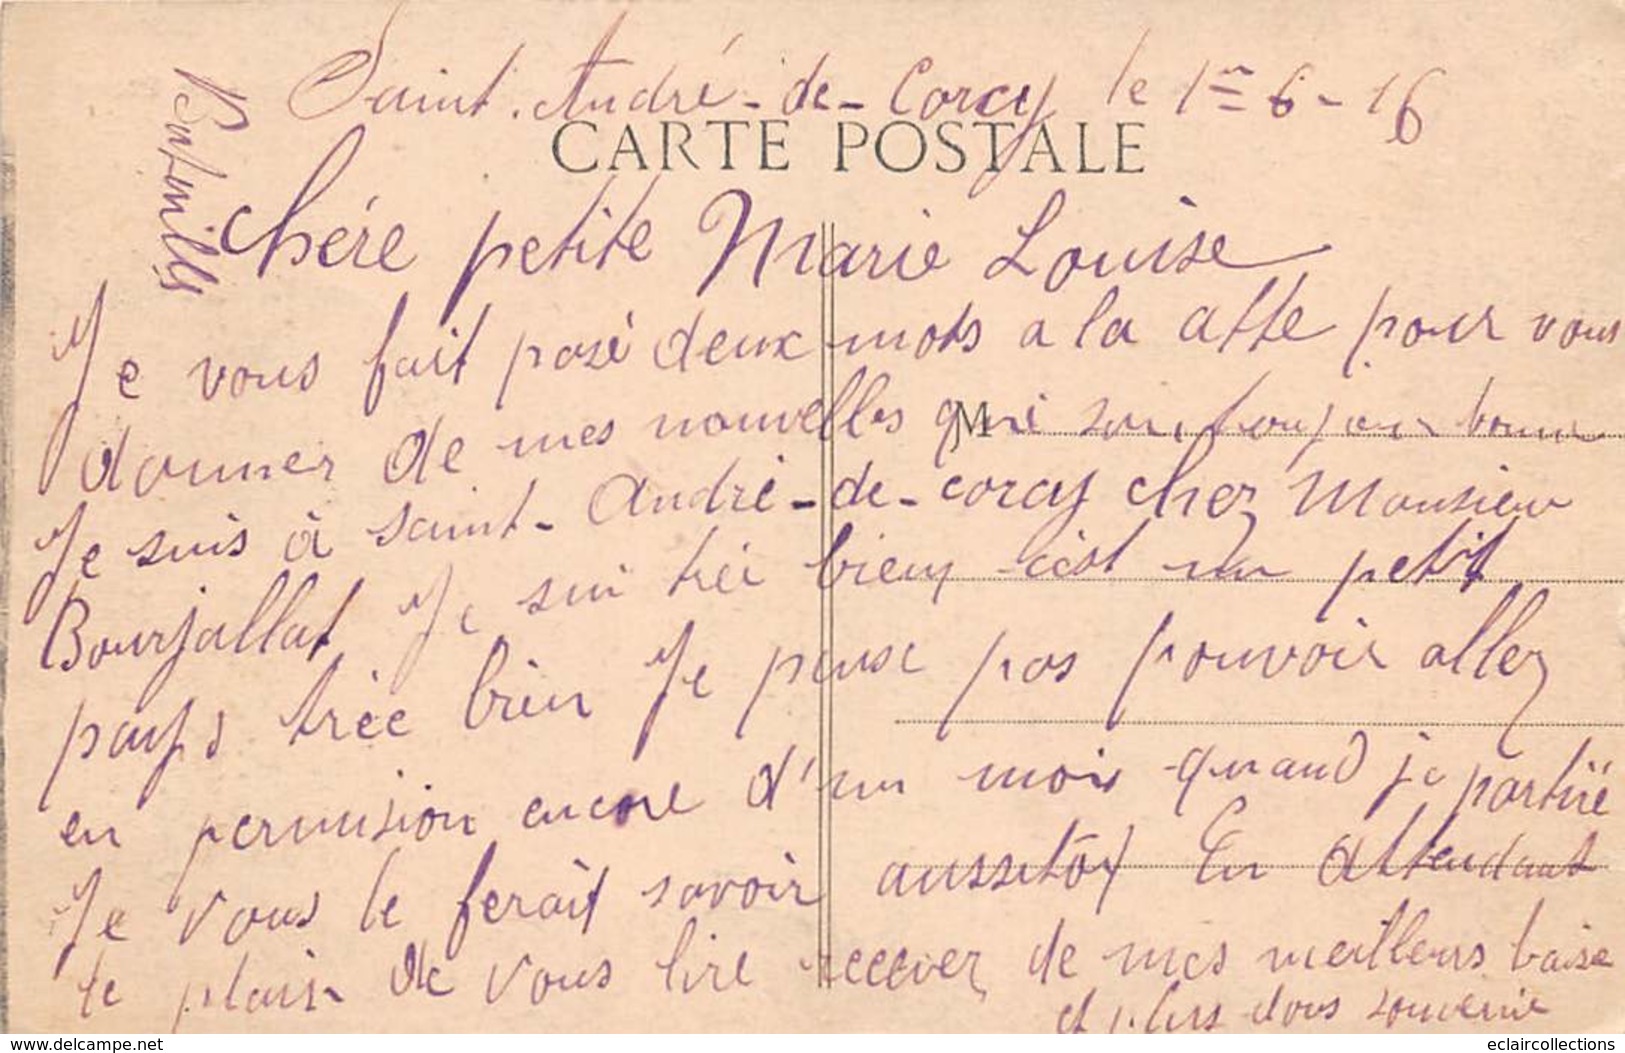 Saint. André-de-Corcy le 1er 6-16
CARTE POSTALE
Chére petite Marie Louise
Je vous fait posé deux mots a la atte pour vous
donner de mes nouvelles qui son toujour bonne
M
Je suis à saint-André-de-corcy chez Monsieur
Bourjallat Je sui trée bien c'est un petit
pays trée bien Je pense pas pouvoir allez
en permision encore d'un mois quand je partiré
Je vous le ferait savoir aussitôt En attendant
le plaisir de vous lire recever de mes meilleurs baise
et plus dous souvenir
delcampe.net
eclaircollections